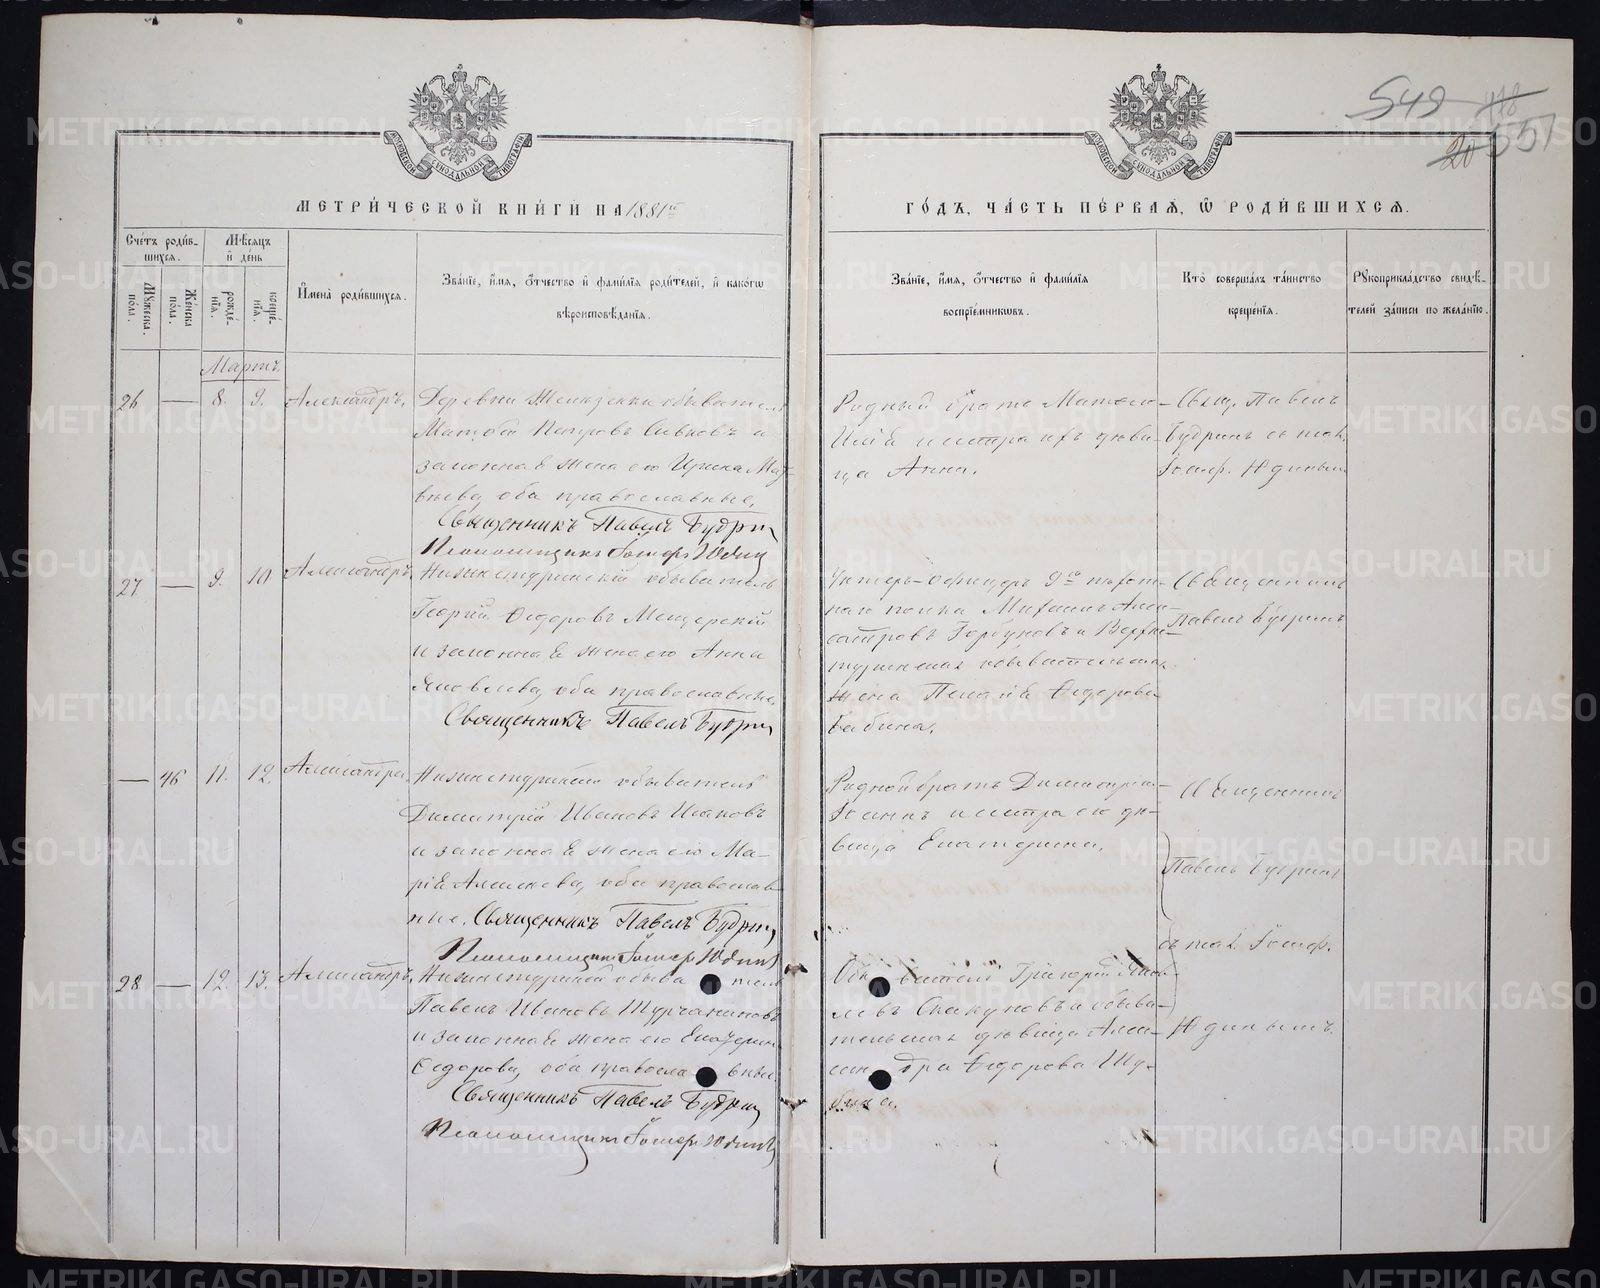 549 448
20 551
МОСКОВСКОЙ СѴНОДАЛЬНОЙ ТИПОГРАФІИ
МОСКОВСКОЙ СѴНОДАЛЬНОЙ ТИПОГРАФІИ
МЕТРИ́ЧЕСКОЙ КНИ́ГИ НА 1881й
ГО́ДЪ, ЧА́СТЬ ПЕ́РВАѦ, Ѡ҆ РОДИ́ВШИХСѦ.
Сче́тъ роди́в-
шихсѧ.
Мꙋ́жеска пола.
Же́нска пола.
Мѣ́сяцъ
и҆ де́нь
рожде́-
нїѧ.
креще́-
нїѧ.
И҆мена̀ роди́вшихсѧ.
Зва́нїе, и҆́мѧ, ѻ҆́тчество и҆ фами́лїѧ роди́телей, и҆ како́гѡ
вѣроисповѣ́данїѧ.
Зва́нїе, и҆́мѧ, ѻ҆́тчество и҆ фами́лїѧ
воспрїе́мникѡвъ.
Кто̀ соверша́лъ та́инство
креще́нїѧ.
Рꙋкоприкла́дство свидѣ́-
телей за́писи по жела́нїю.
Мартъ
26 — 8. 9. Александръ.
обыватель
Матвѣй Петровъ Сивковъ и
законная жена его Ирина Мат-
вѣева, оба православные.
Священникъ Павелъ Будрин
Псаломщикъ Іосиф Юдин
Родный братъ Матвѣя
Илія и сестра ихъ дѣви-
ца Анна.
Свящ. Павелъ
Будринъ съ псал.
Іосиф. Юдиным
27 — 9. 10. Александръ.
Нижнетуринскій обыватель
Георгій Ѳедоровъ Мещерскій
и законная жена его Анна
Яковлева, оба православные.
Священникъ Павелъ Будрин
Унтеръ-Офицеръ 9го пѣхот-
наго полка Михаилъ Алек-
сандровъ Горбуновъ и Верхне-
туринская обывательская
жена Пелагія Ѳедорова
Бабина.
Священникъ
Павелъ Будринъ
— 46 11. 12. Александра.
Нижнетуринскій обыватель
Димитрій Ивановъ Исаковъ
и законная жена его Ма-
рія Алексѣева, оба православ-
ные. Священникъ Павелъ Будрин
Псаломщикъ Іосиф Юдин
Родной братъ Димитрія
Іоаннъ и сестра его дѣ-
вица Екатерина.
Священникъ
Павелъ Будринъ
съ псал. Іосиф.
Юдинымъ.
28 — 12. 13. Александръ.
Нижнетуринской обыватель
Павелъ Ивановъ Турчаниновъ
и законная жена его Екатерина
Ѳедорова, оба православные.
Священникъ Павелъ Будрин
Псаломщикъ Іосиф Юдин
Обыватель Григорій Яков-
левъ Скакуновъ и обыва-
тельская дѣвица Алек-
сандра Ѳедорова
METRIKI.GASO-URAL.RU